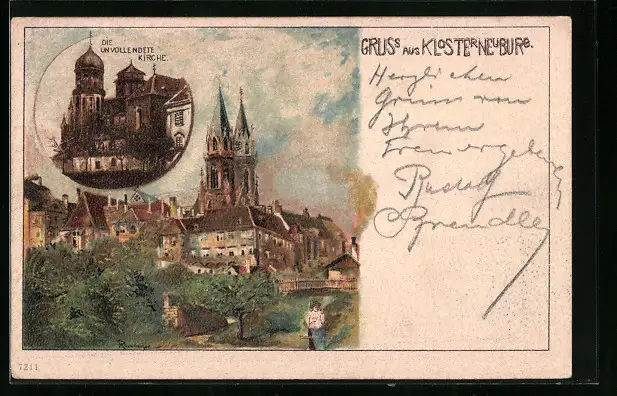 DIE
UNVOLLENDETE
KIRCHE.
GRUSS AUS KLOSTERNEUBURG.
Herzlichen
Gruss von
Ihrem
treuergebenen
Rudolf
Brendle
7211